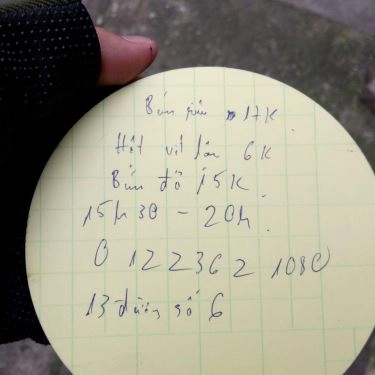 Bún riêu 17K
Hột vịt lộn 6K
Bún đỏ 15K
15h30 - 20h
0 122362 1080
13 đường số 6